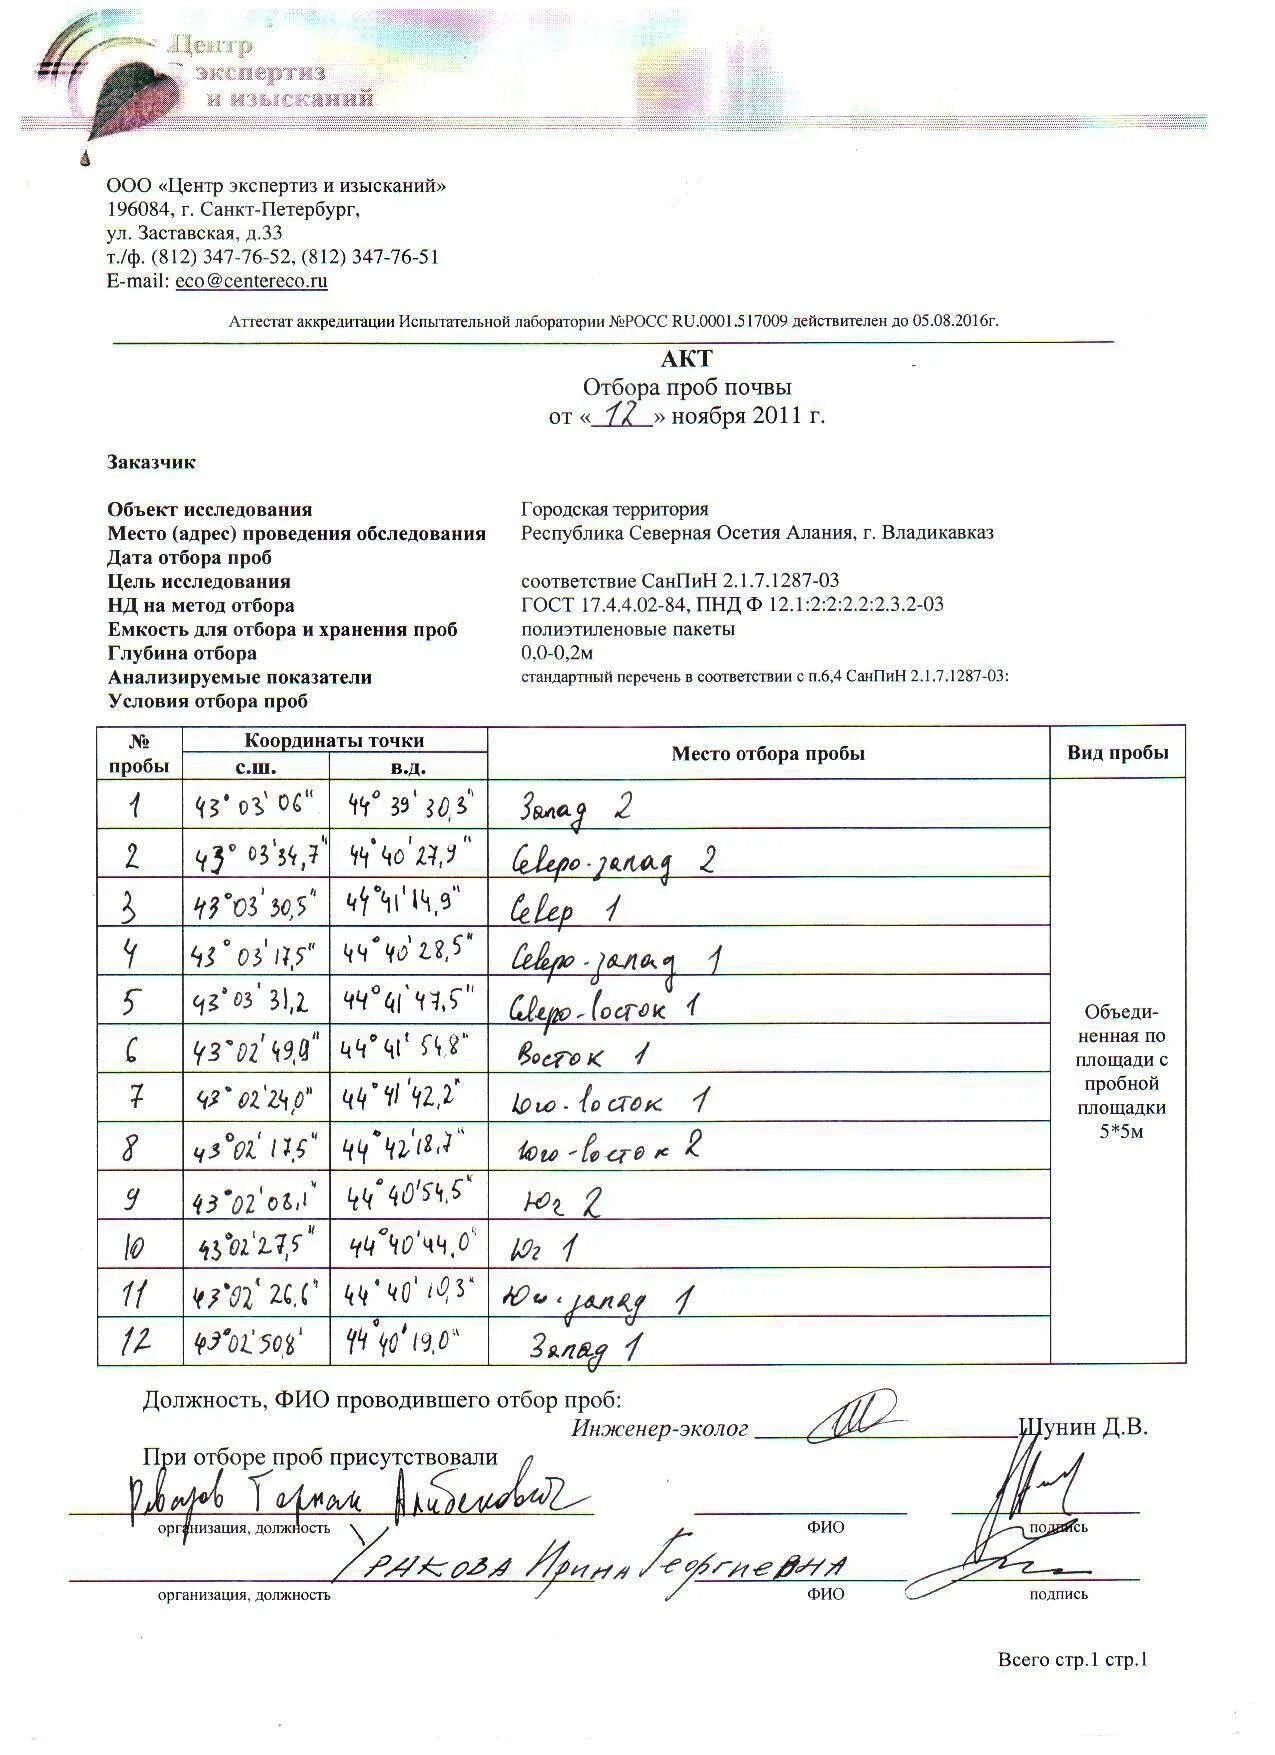 Центр
экспертиз
и изысканий
ООО «Центр экспертиз и изысканий»
196084, г. Санкт-Петербург,
ул. Заставская, д.33
т./ф. (812) 347-76-52, (812) 347-76-51
E-mail: eco@centereco.ru
Аттестат аккредитации Испытательной лаборатории №РОСС RU.0001.517009 действителен до 05.08.2016г.
АКТ
Отбора проб почвы
от «12» ноября 2011 г.
Заказчик
Объект исследования Городская территория
Место (адрес) проведения обследования Республика Северная Осетия Алания, г. Владикавказ
Дата отбора проб
Цель исследования соответствие СанПиН 2.1.7.1287-03
НД на метод отбора ГОСТ 17.4.4.02-84, ПНД Ф 12.1:2:2.2:2.3.2-03
Емкость для отбора и хранения проб полиэтиленовые пакеты
Глубина отбора 0,0-0,2м
Анализируемые показатели стандартный перечень в соответствии с п.6,4 СанПиН 2.1.7.1287-03:
Условия отбора проб
№ пробы Координаты точки Место отбора пробы Вид пробы
с.ш. в.д.
1 43° 03' 06" 44° 39' 30,3" Запад 2
2 43° 03' 34,7" 44° 40' 27,9" Северо-запад 2
3 43° 03' 30,5" 44° 41' 14,9" Север 1
4 43° 03' 17,5" 44° 40' 28,5" Северо-запад 1
5 43° 03' 31,2 44° 41' 47,5" Северо-восток 1
6 43° 02' 49,9" 44° 41' 54,8" Восток 1
7 43° 02' 24,0" 44° 41' 42,2" Юго-восток 1
8 43° 02' 17,5" 44° 42' 18,7" Юго-восток 2
9 43° 02' 08,1" 44° 40' 54,5" Юг 2
10 43° 02' 27,5" 44° 40' 44,0" Юг 1
11 43° 02' 26,6" 44° 40' 10,3" Юго-запад 1
12 43° 02' 50,8' 44° 40' 19,0" Запад 1
Объеди-
ненная по
площади с
пробной
площадки
5*5м
Должность, ФИО проводившего отбор проб:
Инженер-эколог Шунин Д.В.
При отборе проб присутствовали
Герман Алибекович
организация, должность ФИО подпись
Уракова Ирина Георгиевна
организация, должность ФИО подпись
Всего стр.1 стр.1